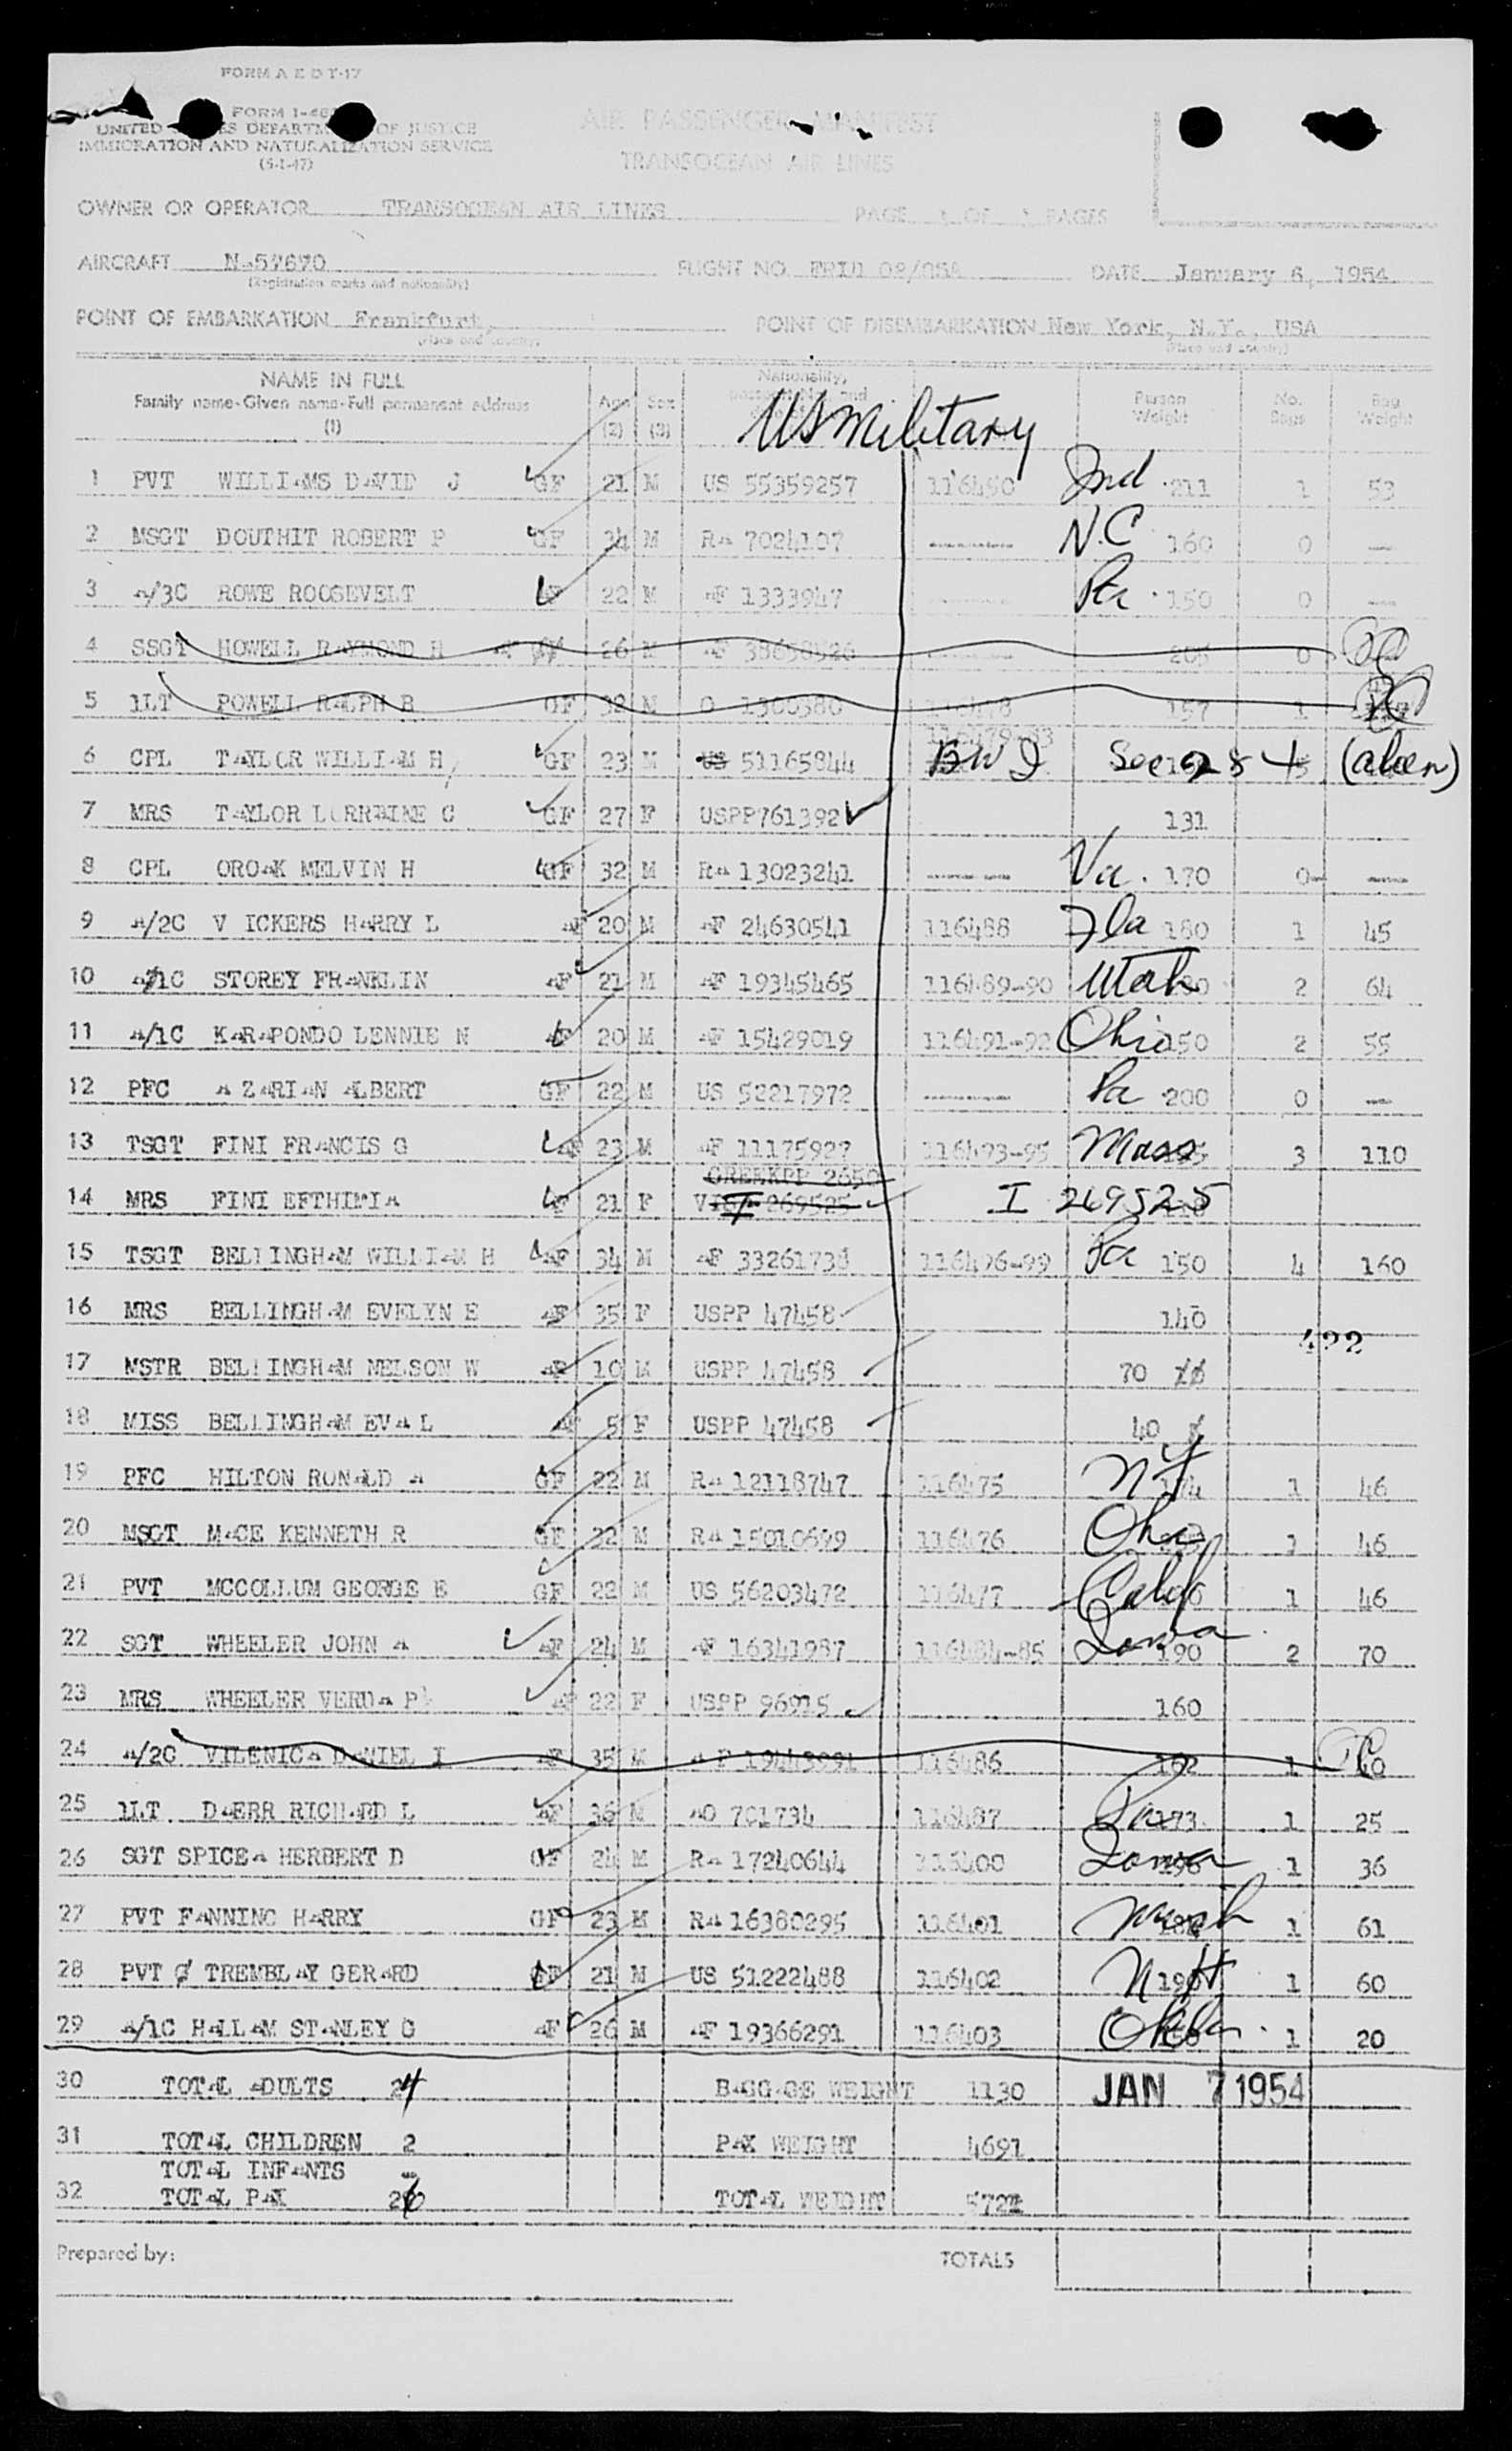 FORM A E D T-17
FORM I-
UNITED DEPARTM OF JUSTICE
IMMIGRATION AND NATURALIZATION SERVICE
(5-1-47)
AIR PASSENGER MANIFEST
TRANSOCEAN AIR LINES
OWNER OR OPERATOR TRANSOCEAN AIR LINES PAGE 1 OF 1 PAGES
AIRCRAFT FLIGHT NO. DATE January 6, 1954
(Registration marks and nationality)
POINT OF EMBARKATION Frankfurt, POINT OF DISEMBARKATION New York, N.Y., USA
(Place and country) (Place and country)
NAME IN FULL Age Sex Nationality, Person Weight No. Bags Bag Weight
Family name-Given name-Full permanent address
(1) (2) (3) US Military
1 PVT WILLIAMS DAVID J GF 21 M US 55359257 116450 Ind. 211 1 53
2 MSGT DOUTHIT ROBERT P GF 34 M RA 7024107 ---- N.C 160 0 --
3 A/3C ROWE ROOSEVELT AF 22 M AF 1333947 ---- Pa. 150 0 --
4 SSGT HOWELL RAYMOND H AF 26 M AF ---- 205 0
5 1LT POWELL RALPH R GF 32 M O 1300380 116478 157 1
6 CPL TAYLOR WILLIAM H GF 23 M US 51165844 116479-83 BWI See 28 (alien)
7 MRS TAYLOR LORRAINE C GF 27 F USPP761392 131
8 CPL OROAK MELVIN H GF 32 M RA 13023241 ---- Va. 170 0 --
9 A/2C V ICKERS HARRY L AF 20 M AF 24630541 116488 Fla 180 1 45
10 A/1C STOREY FRANKLIN AF 21 M AF 19345465 116489-90 Utah 2 64
11 A/1C KARAPONDO LENNIE N AF 20 M AF 15429019 116491-92 Ohio 150 2 55
12 PFC A ZARIAN ALBERT GF 22 M US 52217972 ---- Pa 200 0 --
13 TSGT FINI FRANCIS G AF 23 M AF 11175927 116493-95 Mass 3 110
GREEKPP 2650
14 MRS FINI EFTHIMIA AF 21 F VISA 269525 I 269525
15 TSGT BELLINGHAM WILLIAM H AF 34 M AF 33261738 116496-99 Pa 150 4 160
16 MRS BELLINGHAM EVELYN E AF 35 F USPP 47458 140
422
17 MSTR BELLINGHAM NELSON W AF 10 M USPP 47458 70
18 MISS BELLINGHAM EVA L AF 5 F USPP 47458 40
19 PFC HILTON RONALD A GF 22 M RA 12118747 116475 NY 174 1 46
20 MSGT MACE KENNETH R GF 32 M RA 15010699 116476 Ohio 1 46
21 PVT MCCOLLUM GEORGE E GF 22 M US 56203472 116477 Calif 1 46
22 SGT WHEELER JOHN A AF 24 M AF 16341987 116484-85 Iowa 190 2 70
23 MRS WHEELER VERDA P AF 22 F USPP 96915 160
24 A/2C VILENICA DANIEL I AF 35 M AF 19443991 116486 162 1
25 1LT DAERR RICHARD L AF 36 M AO 701734 116487 Pa 173 1 25
26 SGT SPICEA HERBERT D GF 24 M RA 17240644 116400 Iowa 1 36
27 PVT FANNING HARRY GF 23 M RA 16380295 116401 Mich 1 61
28 PVT TREMBLAY GERARD GF 21 M US 51222488 116402 NH 1 60
29 A/1C HALLAM STANLEY G AF 26 M AF 19366291 116403 Okla. 1 20
30 TOTAL ADULTS 24 BAGGAGE WEIGHT 1130 JAN 7 1954
31 TOTAL CHILDREN 2 PAX WEIGHT 4691
TOTAL INFANTS -
32 TOTAL PAX 26 TOTAL WEIGHT
Prepared by: TOTALS